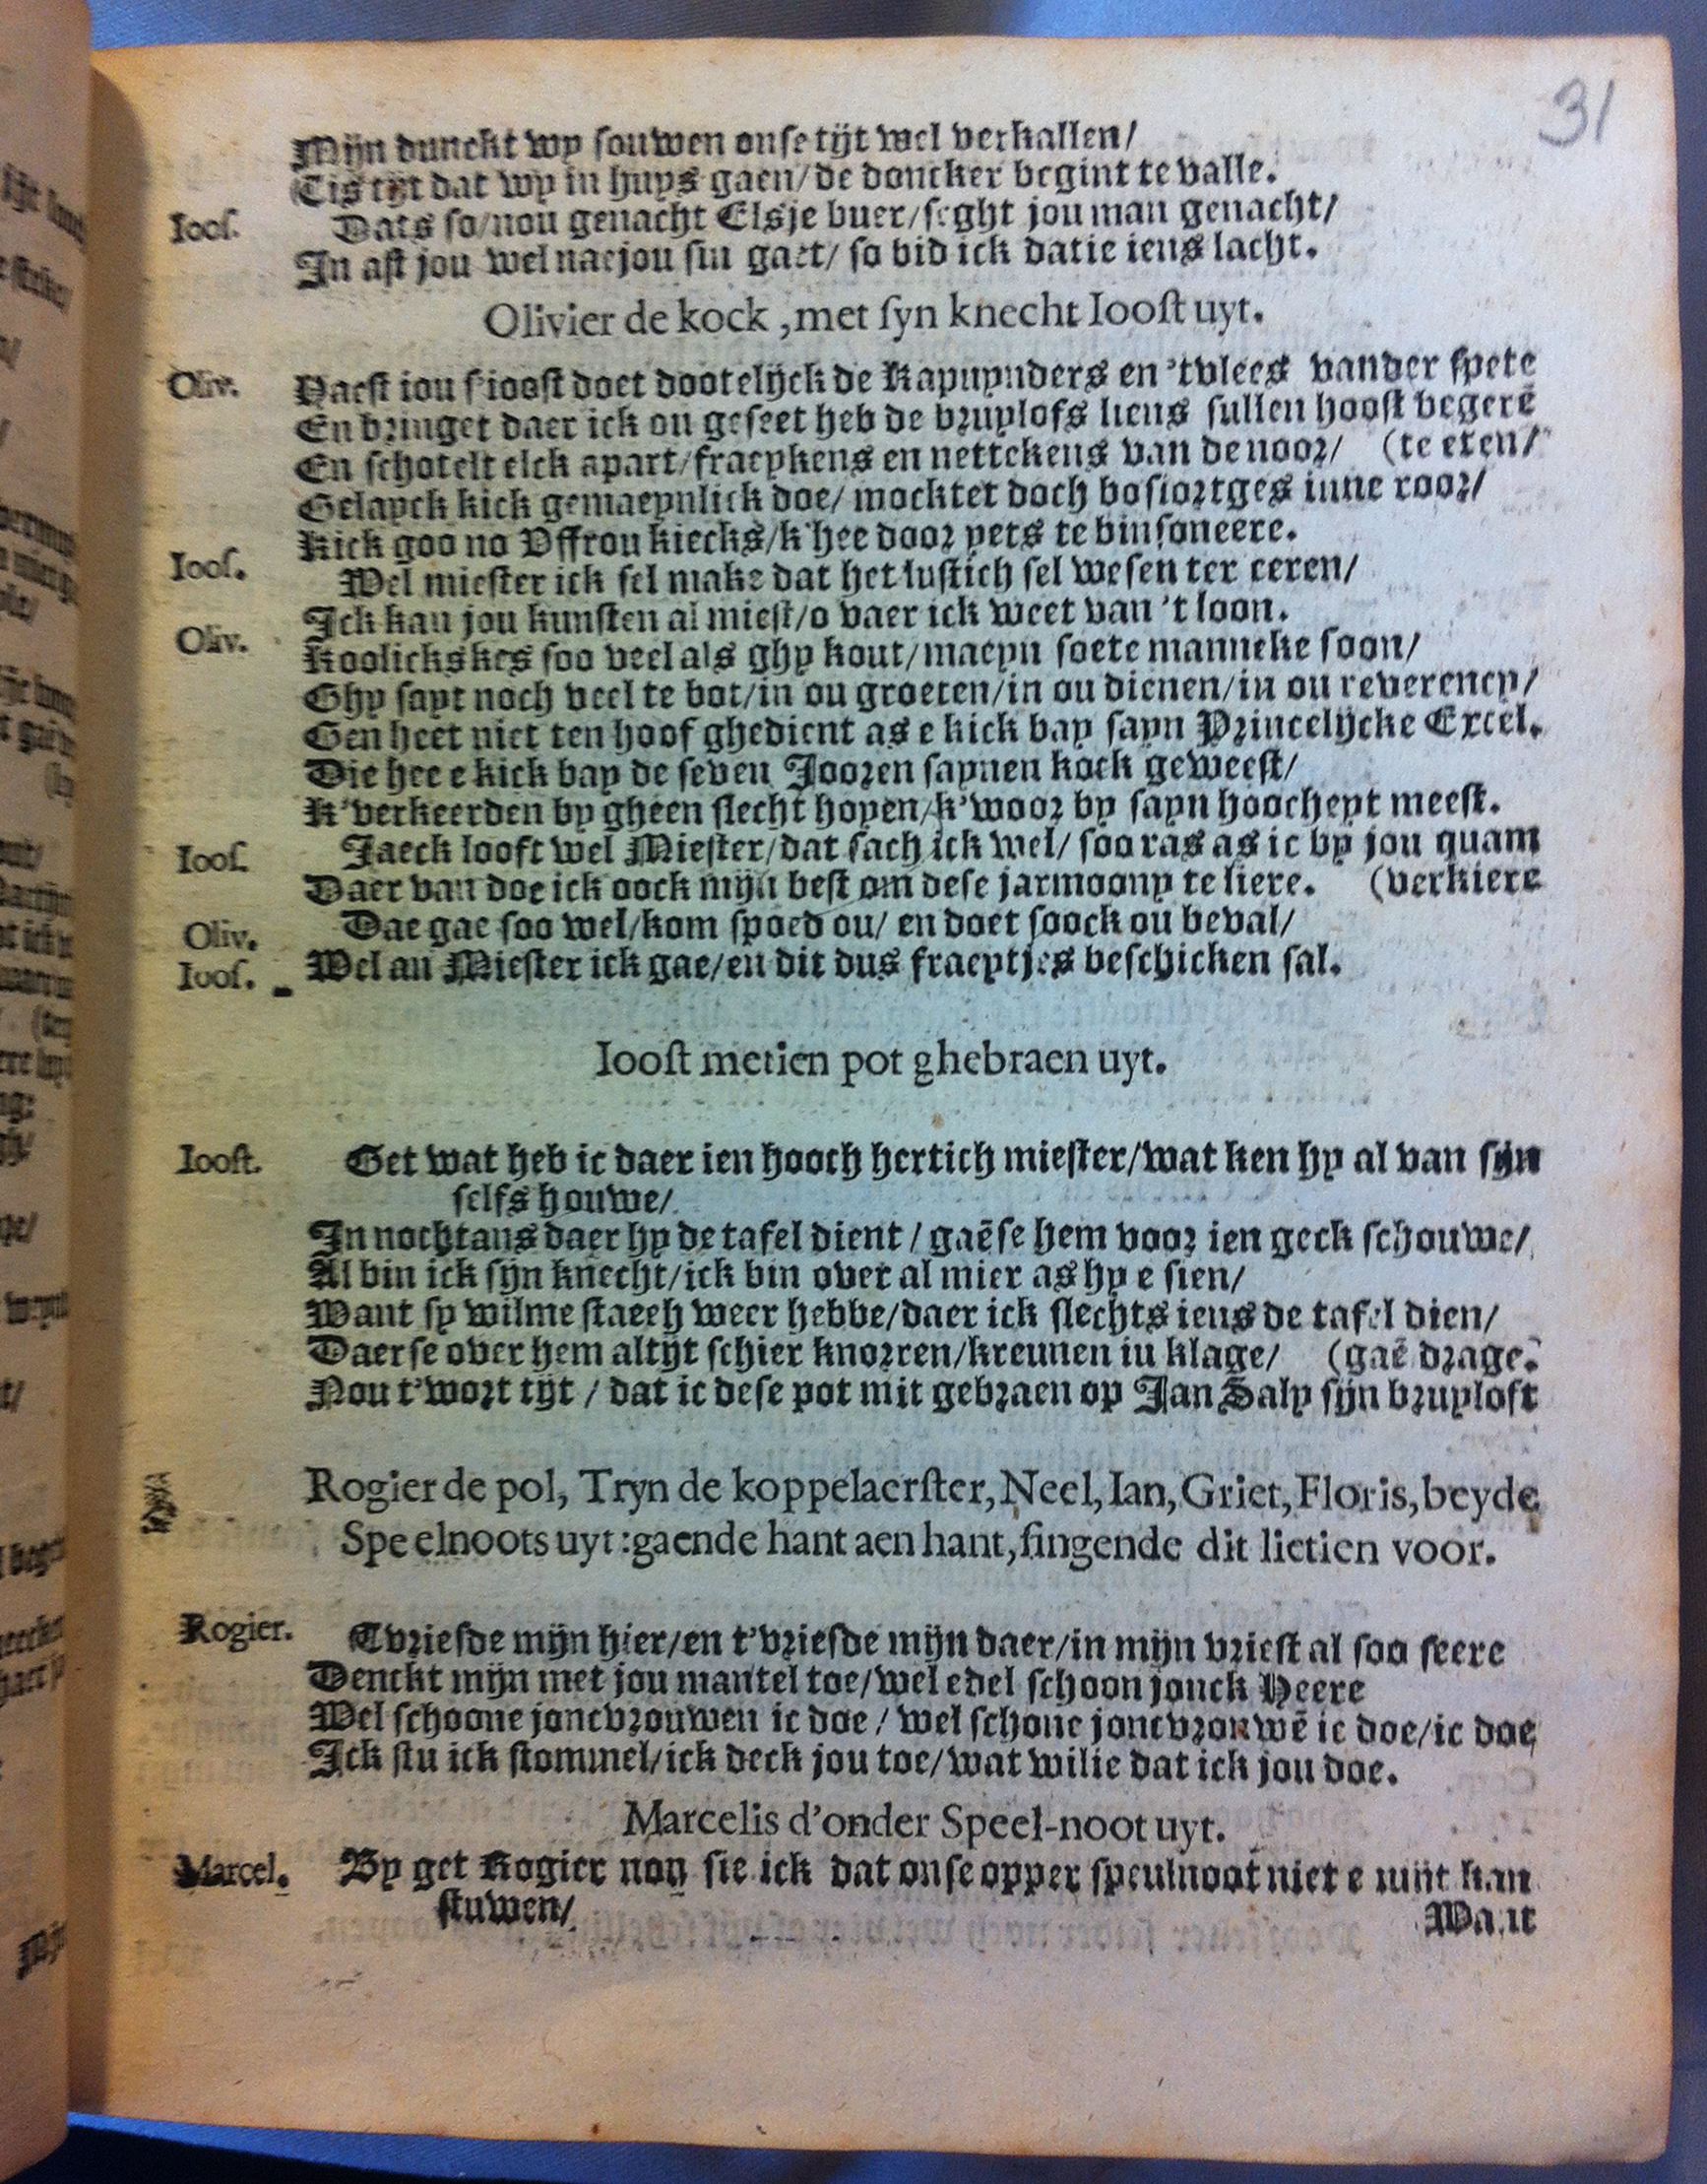 31
Mijn dunckt wy souwen onse tijt wel verkallen/
Tis tijt dat wy in huys gaen/de doncker begint te valle.
Ioos. Dats so/nou genacht Elsje buer/seght jou man genacht/
In ast jou wel nae jou sin gaet/ so bid ick datie iens lacht.
Olivier de kock, met syn knecht Ioost uyt.
Oliv. Haest iou s'ioost doet dootelijck de Kapuynders en 'tvlees vander spetē
En bringet daer ick ou geseet heb de bruylofs liens sullen hoost begerē
En schotelt elck apart/fraeykens en nettekens van de noor/ (te eten/
Gelayck kick gemaeynlick doe/ mocktet doch bosiortges inne roor/
Kick goo no Uffrou kiecks/k'hee door yets te binsoneere.
Ioos. Wel miester ick sel make dat het lustich sel wesen ter eeren/
Ick kan jou kunsten al miest/o vaer ick weet van 't loon.
Oliv. Koolickskes soo veel als ghy kout/maeyn soete manneke soon/
Ghy sayt noch veel te bot/in ou groeten/in ou dienen/in ou reverency/
Gen heet niet ten hoof ghedient as e kick bay sayn Princelijcke Excel.
Die hee e kick bay de seven Jooren saynen kock geweest/
K'verkeerden by gheen slecht hopen/k'woor by sayn hoocheyt meest.
Ioos. Jaeck looft wel Miester/dat sach ick wel/ soo ras as ic by jou quam
Daer van doe ick oock mijn best om dese jarmoony te liere. (verkiere
Oliv. Dae gae soo wel/kom spoed ou/ en doet soock ou beval/
Ioos. Wel an Miester ick gae/en dit dus fraeytjes beschicken sal.
Ioost metien pot ghebraen uyt.
Ioost. Get wat heb ic daer ien hooch hertich miester/wat ken hy al van sijn
selfs houwe/
In nochtans daer hy de tafel dient / gaēse hem voor ien geck schouwe/
Al bin ick sijn knecht/ick bin over al mier as hy e sien/
Want sy wilme staegh weer hebbe/daer ick slechts iens de tafel dien/
Daerse over hem altijt schier knorren/kreunen in klage/ (gaē drage.
Nou t'wort tijt / dat ic dese pot mit gebraen op Jan Saly sijn bruyloft
Rogier de pol, Tryn de koppelaerster, Neel, Ian, Griet, Floris, beyde
Speelnoots uyt: gaende hant aen hant, singende dit lietien voor.
Rogier. Tvriesde mijn hier/en t'vriesde mijn daer/in mijn vriest al soo seere
Denckt mijn met jou mantel toe/wel edel schoon jonck Heere
Wel schoone joncvrouwen ic doe / wel schone joncvrouwē ic doe/ic doe
Ick stu ick stommel/ick deck jou toe/wat wilie dat ick jou doe.
Marcelis d'onder Speel-noot uyt.
Marcel. By get Rogier nou sie ick dat onse opper speulnoot niet e mijt kan
stuwen/
Want